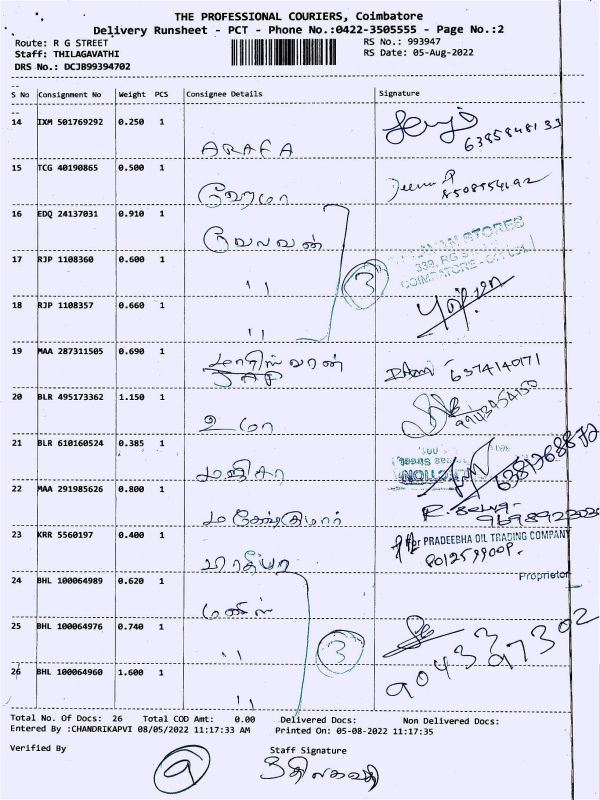 THE PROFESSIONAL COURIERS, Coimbatore
Delivery Runsheet - PCT - Phone No.:0422-3505555 - Page No.:2
Route: R G STREET RS No.: 993947
Staff: THILAGAVATHI RS Date: 05-Aug-2022
DRS No.: DCJB99394702
S No Consignment No Weight PCS Consignee Details Signature
14 IXM 501769292 0.250 1 ARAFA 6385848133
15 TCG 40190865 0.500 1 ஹேமா
16 EDQ 24137031 0.910 1 வேலவன்
STORES
339, RG
COIMBATORE
17 RJP 1108360 0.600 1 "
3
18 RJP 1108357 0.660 1 "
19 MAA 287311505 0.690 1 மாரீஸ்வரன் 6374140171
20 BLR 495173362 1.150 1 உமா
21 BLR 610160524 0.385 1
22 MAA 291985626 0.800 1 மகேஷ்குமார்
23 KRR 5560197 0.400 1 பிரதீபா
For PRADEEBHA OIL TRADING COMPANY
Proprietor
24 BHL 100064989 0.620 1 மணிஸ்
25 BHL 100064976 0.740 1 "
3
9043397302
26 BHL 100064960 1.600 1 "
Total No. Of Docs: 26 Total COD Amt: 0.00 Delivered Docs: Non Delivered Docs:
Entered By :CHANDRIKAPVI 08/05/2022 11:17:33 AM Printed On: 05-08-2022 11:17:35
Verified By Staff Signature
9 திலகவதி